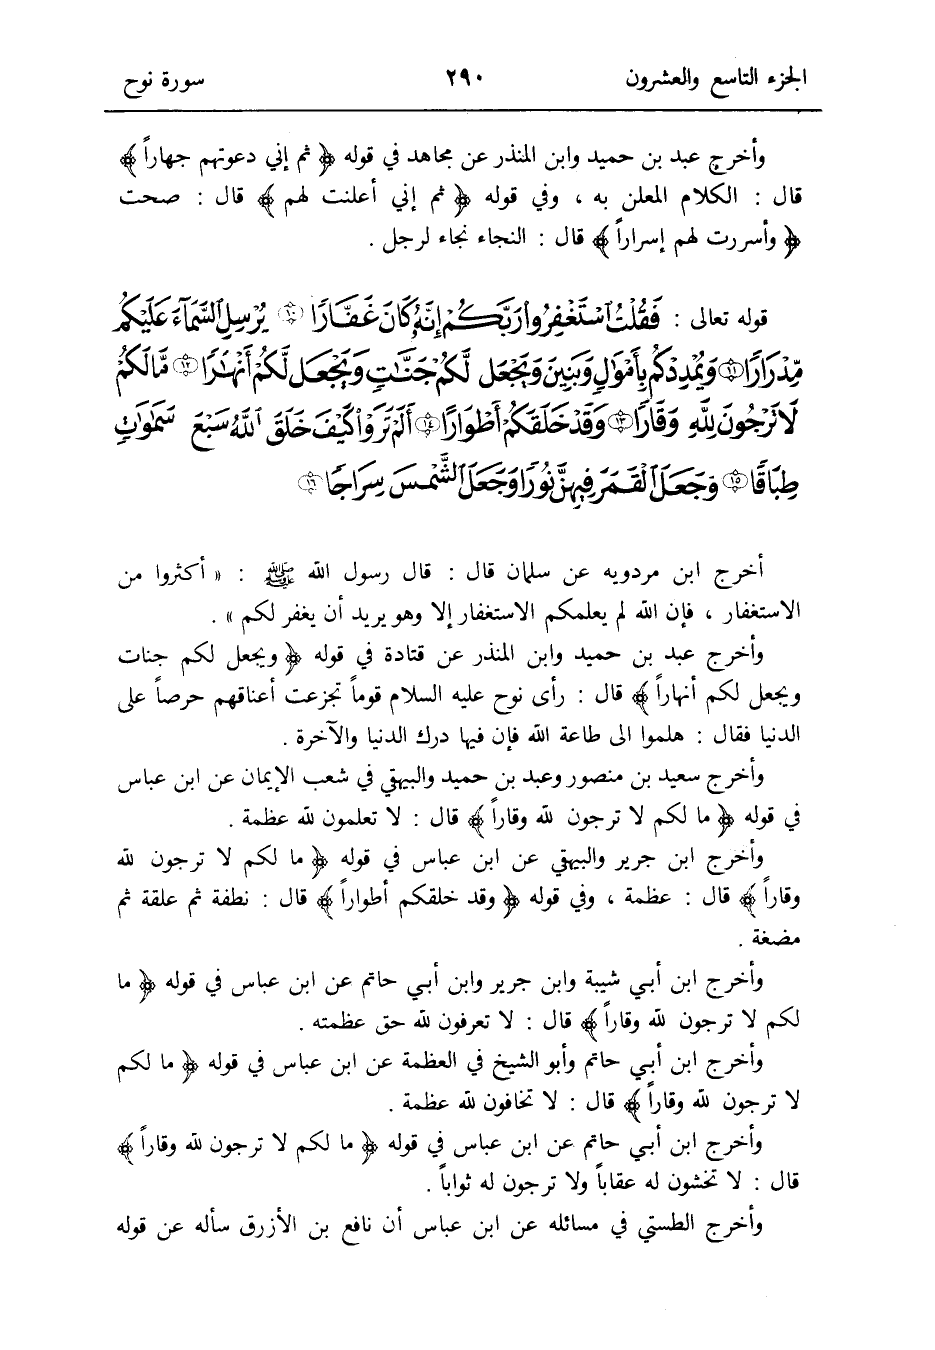 الجزء التاسع والعشرون ٢٩٠ سورة نوح
وأخرج عبد بن حميد وابن المنذر عن مجاهد في قوله ﴿ ثم إني دعوتهم جهاراً ﴾
قال : الكلام المعلن به ، وفي قوله ﴿ ثم إني أعلنت لهم ﴾ قال : صحت
﴿ وأسررت لهم إسراراً ﴾ قال : النجاء نجاء لرجل .
قوله تعالى : فَقُلْتُ ٱسْتَغْفِرُوا۟ رَبَّكُمْ إِنَّهُۥ كَانَ غَفَّارًا ۝١٠ يُرْسِلِ ٱلسَّمَآءَ عَلَيْكُم
مِّدْرَارًا ۝١١ وَيُمْدِدْكُم بِأَمْوَٰلٍ وَبَنِينَ وَيَجْعَل لَّكُمْ جَنَّـٰتٍ وَيَجْعَل لَّكُمْ أَنْهَـٰرًا ۝١٢ مَّا لَكُمْ
لَا تَرْجُونَ لِلَّهِ وَقَارًا ۝١٣ وَقَدْ خَلَقَكُمْ أَطْوَارًا ۝١٤ أَلَمْ تَرَوْا۟ كَيْفَ خَلَقَ ٱللَّهُ سَبْعَ سَمَـٰوَٰتٍ
طِبَاقًا ۝١٥ وَجَعَلَ ٱلْقَمَرَ فِيهِنَّ نُورًا وَجَعَلَ ٱلشَّمْسَ سِرَاجًا ۝١٦
أخرج ابن مردويه عن سلمان قال : قال رسول الله ﷺ : « أكثروا من
الاستغفار ، فإن الله لم يعلمكم الاستغفار إلا وهو يريد أن يغفر لكم » .
وأخرج عبد بن حميد وابن المنذر عن قتادة في قوله ﴿ ويجعل لكم جنات
ويجعل لكم أنهاراً ﴾ قال : رأى نوح عليه السلام قوماً تجزعت أعناقهم حرصاً على
الدنيا فقال : هلموا الى طاعة الله فإن فيها درك الدنيا والآخرة .
وأخرج سعيد بن منصور وعبد بن حميد والبيهقي في شعب الإيمان عن ابن عباس
في قوله ﴿ ما لكم لا ترجون لله وقاراً ﴾ قال : لا تعلمون لله عظمة .
وأخرج ابن جرير والبيهقي عن ابن عباس في قوله ﴿ ما لكم لا ترجون لله
وقاراً ﴾ قال : عظمة ، وفي قوله ﴿ وقد خلقكم أطواراً ﴾ قال : نطفة ثم علقة ثم
مضغة .
وأخرج ابن أبي شيبة وابن جرير وابن أبي حاتم عن ابن عباس في قوله ﴿ ما
لكم لا ترجون لله وقاراً ﴾ قال : لا تعرفون لله حق عظمته .
وأخرج ابن أبي حاتم وأبو الشيخ في العظمة عن ابن عباس في قوله ﴿ ما لكم
لا ترجون لله وقاراً ﴾ قال : لا تخافون لله عظمة .
وأخرج ابن أبي حاتم عن ابن عباس في قوله ﴿ ما لكم لا ترجون لله وقاراً ﴾
قال : لا تخشون له عقاباً ولا ترجون له ثواباً .
وأخرج الطستي في مسائله عن ابن عباس أن نافع بن الأزرق سأله عن قوله